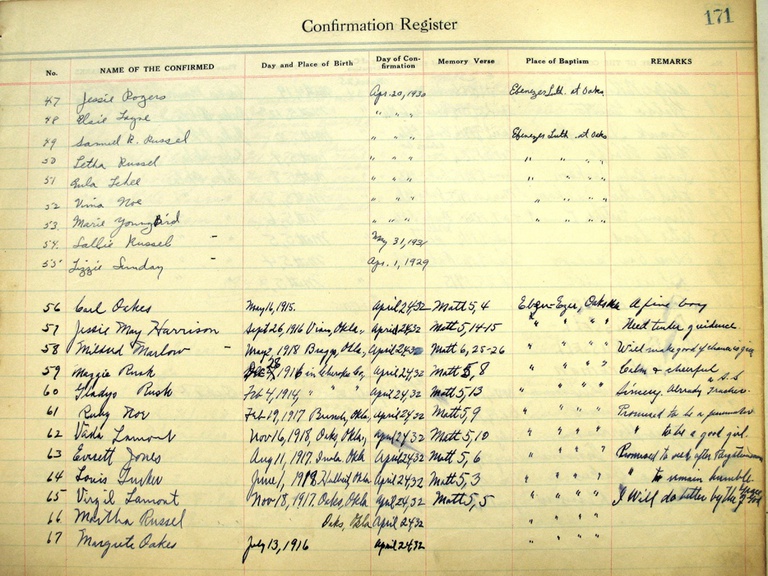 171
Confirmation Register
No. NAME OF THE CONFIRMED Day and Place of Birth Day of Con-firmation Memory Verse Place of Baptism REMARKS
47 Jessie Rogers Apr. 20, 1930 Ebenezer Luth. at Oaks
48 Elsie " " "
49 Samuel R. Russel " " " Ebenezer Luth at Oaks
50 Letha Russel " " " " " " "
51 Eula " " " " " " "
52 Vina Noe " " " " " " "
53. Marie Youngbird " " " " " " "
54. Sallie Russel - May 31, 1931
55 Lizzie Sunday - Apr. 1, 1929
56 Carl Oakes May 16, 1915. April 24, 32 Matt 5, 4 Eben-Ezer, Oaks A fine boy
57 Jessie May Harrison Sept 26, 1916 Okla., April 24, 32 Matt 5, 14-15 " " " " Need guidence.
58 Mildred Marlow - 1918 Okla., April 24, 32 Matt 6, 25-26 " " " " Will make good if chance is
59 Maggie Rusk Dec 28 1916 in Cherokee Co, April 24, 32 Matt 5, 8 " " " " & cheerful
60 Gladys Rusk Feb 4, 1914, " " " April 24, 32 Matt 5, 13 " " " " Already S.S. Teacher.
61 Ruby Noe Feb 19, 1917 Okla, April 24, 32 Matt 5, 9 " " " " Promised to be a
62 Veda Lamont Nov 16, 1918, Oaks, Okla, April 24, 32 Matt 5, 10 " " " " " to be a good girl.
63 Errett Jones Aug 11, 1917 Inola Okla. April 24, 32 Matt 5, 6 " " " " Promised to after
64 Louis June 1, 1918 Okla April 24, 32 Matt 5, 3 " " " " " to remain humble.
65 Virgil Lamont Nov 18, 1917 Oaks, Okla April 24, 32 Matt 5, 5 " " " " I Will do better by the grace of God
66 Martha Russel Oaks, Okla April 24, 32 " " " "
67 Margrete Oakes July 13, 1916 April 24, 32 " " " "